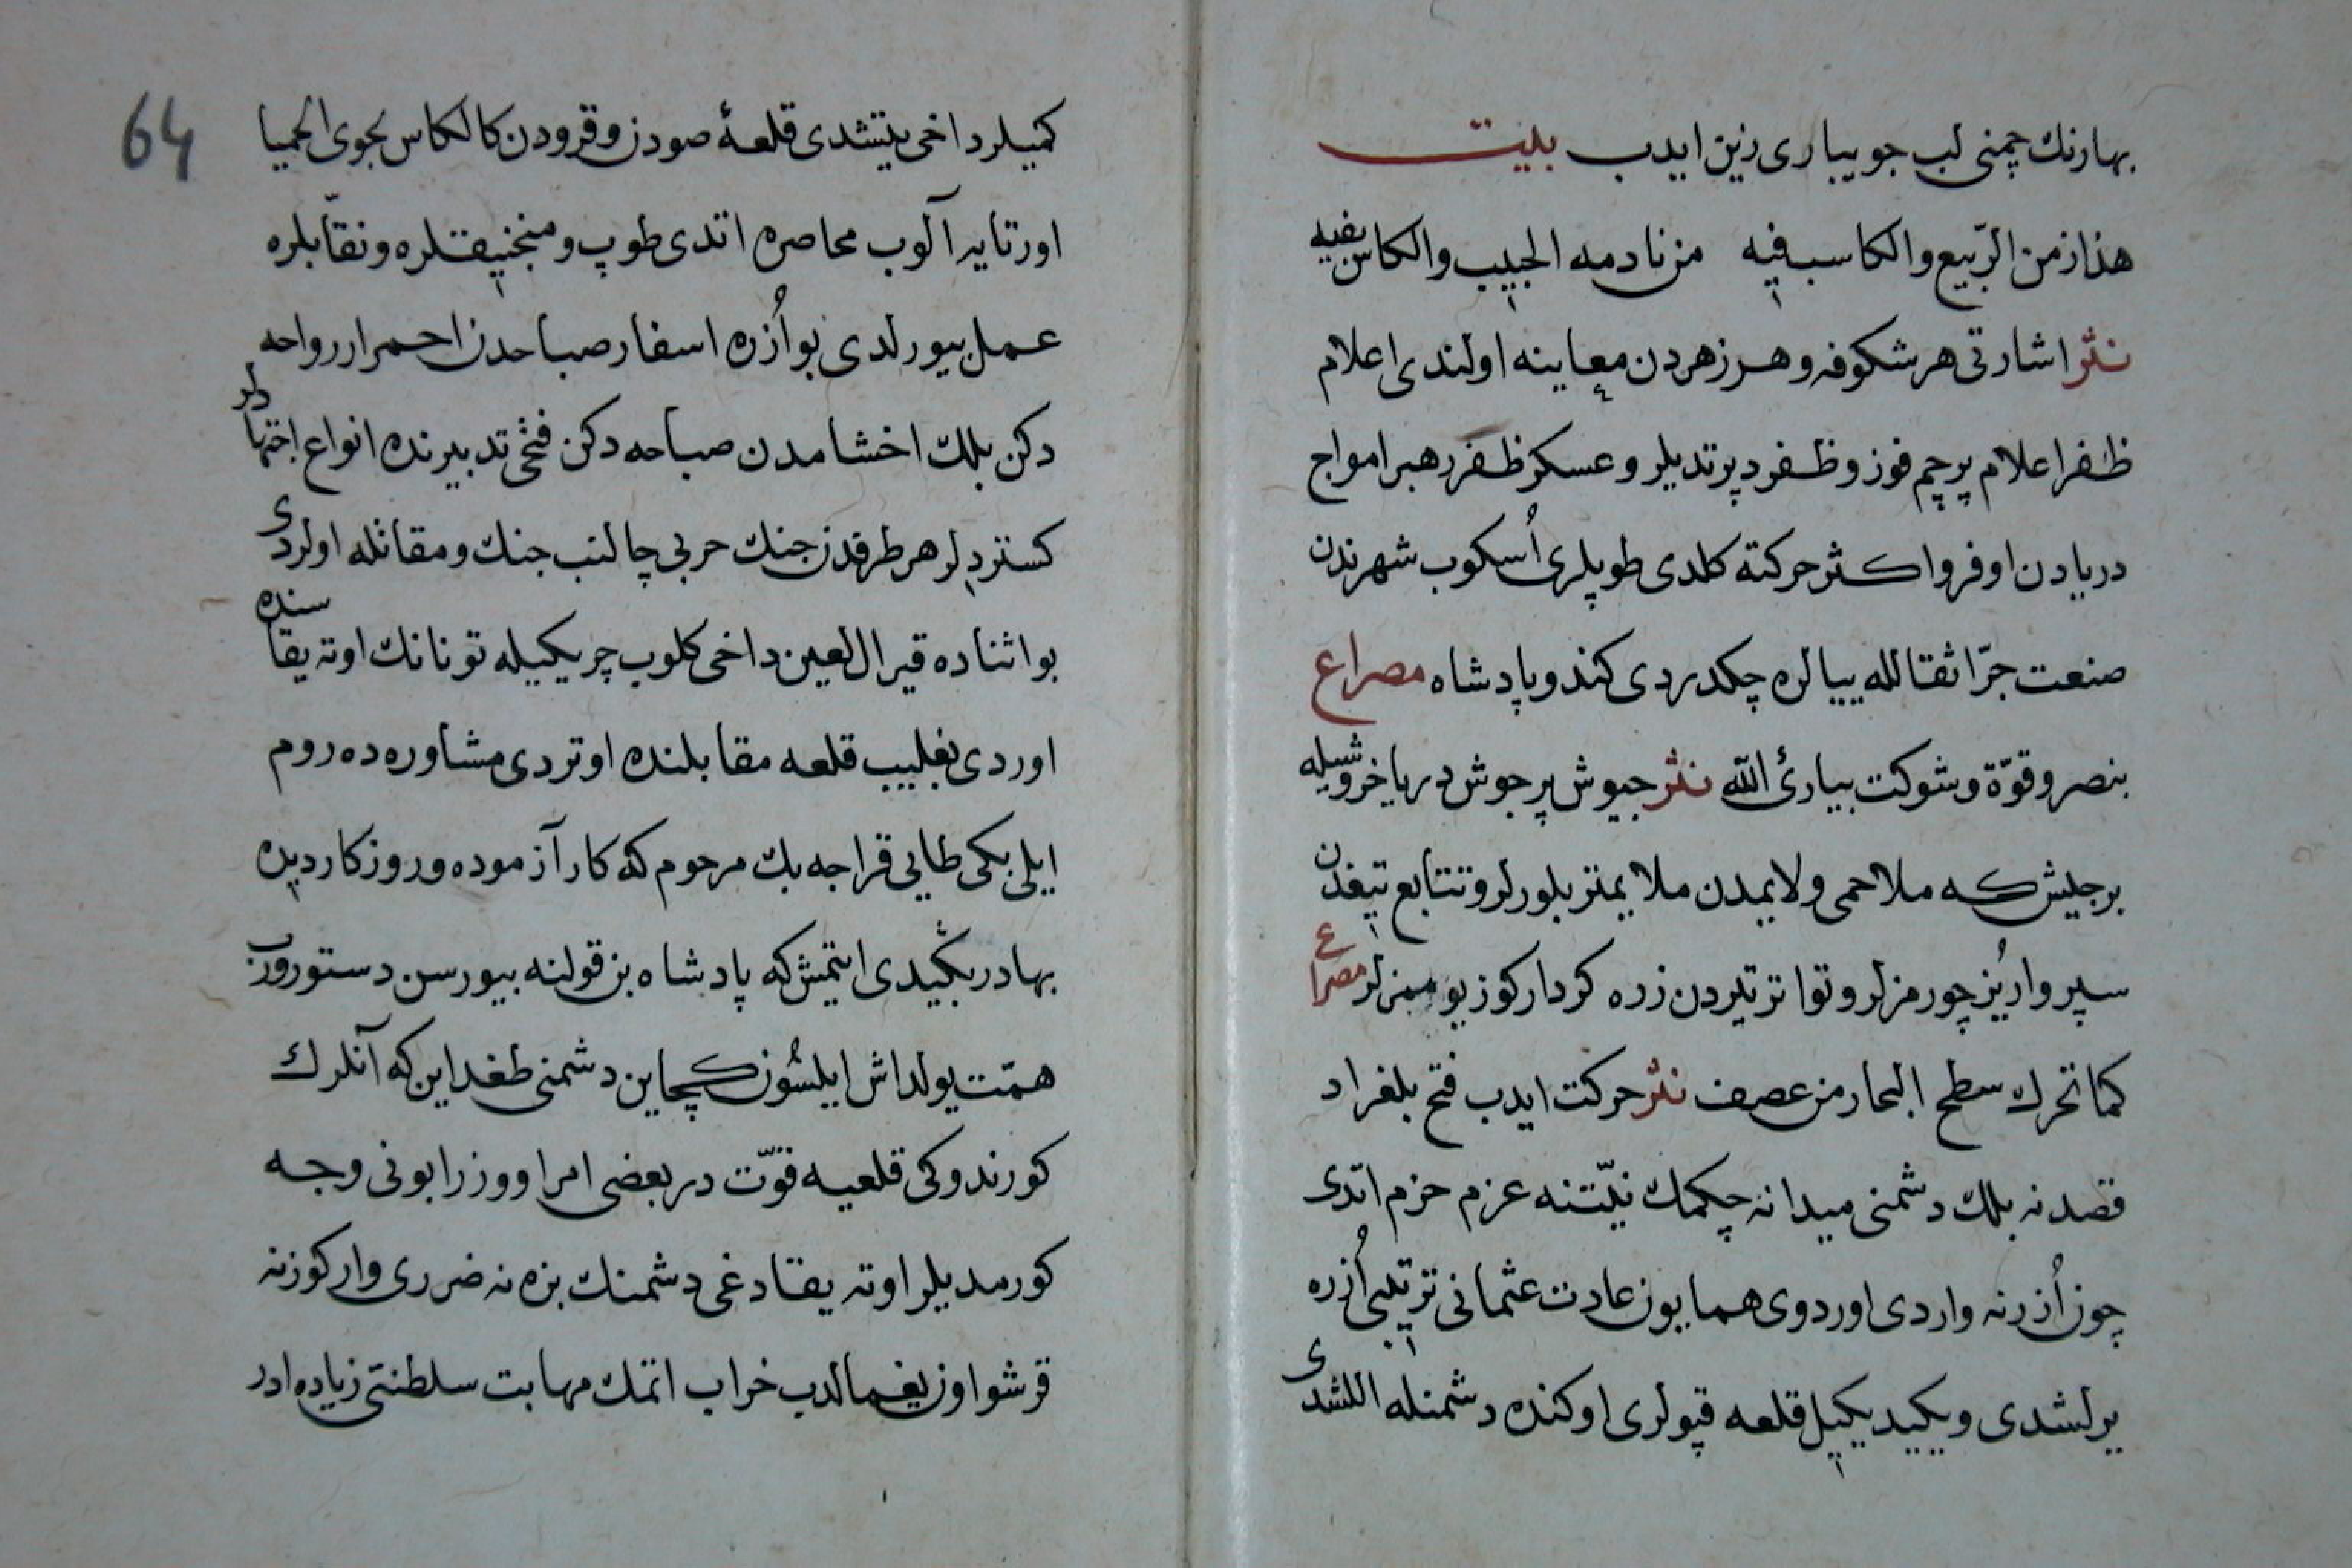 بهارنك چمنی لب جویباری زین ایدب بیت
هذا زمن الرّبیع والكاسب فیه من نادمه الحبیب والكاس بفیه
نثر اشارتی هر شكوفه و هر زهردن معاینه اولندی اعلام
ظفر اعلام پرچم فوز و ظفر دپرتدیلر و عسكر ظفر رهبر امواج
دریادن اوفر و اكثر حركته كلدی طوپلری اُسكوب شهرندن
صنعت جرّ اثقالله ییالره چكدردی كندو پادشاه مصراع
بنصر و قوّة و شوكت بیاریٔ اللّه نثر جیوش پر جوش دریا خروشیله
بر جیش كه ملاحمی ولایمدن ملایمتر بلورلر و تتابع تیغدن
سپروار یُز چورمزلر و تواتر تیردن زره كردار كوز یومزلر مصراع
كما تحرك سطح البحار من عصف نثر حركت ایدب فتح بلغراد
قصدنه بلك دشمنی میدانه چكمك نیّتنه عزم حزم اتدی
چون اُزرنه واردی اوردوی همایون عادت عثمانی ترتیبی اُزره
یرلشدی و یكید یكیل قلعه قپولری اوكنده دشمنله اللشدی
64
كمیلر داخی یتیشدی قلعهٔ صودن و قرودن كالكاس بجوی الحمیا
اورتایه آلوب محاصره اتدی طوپ و منجنیقلره و نقّابلره
عمل بیورلدی بو اُزره اسفار صباحدن احمرار رواحه
دكن بلك اخشامدن صباحه دكن فتحی تدبیرنده انواع اجتهادلر
كستردیلر هر طرفدن جنك حربی چالنب جنك و مقاتله اولردی
بو اثناده قیرال لعین داخی كلوب چریكیله تونانك اوته یقاسنده
اوردی بغلییب قلعه مقابلنده اوتردی مشاوره ده روم
ایلی بكی طایی قراجه بك مرحوم كه كار آزموده و روزكار دیده
بهادر بكیدی ایتمیش كه پادشاه بن قولنه بیورسن دستور ورب
همّت یولداش ایلسُون كچاین دشمنی طغداین كه آنلرك
كورندوكی قلعیه قوّت در بعضی امرا و وزرا بونی وجه
كورمدیلر اوته یقادغی دشمنك بزه نه ضرری وار كوزنه
قرشو اون یغمالدب خراب اتمك مهابت سلطنتی زیاده ادر